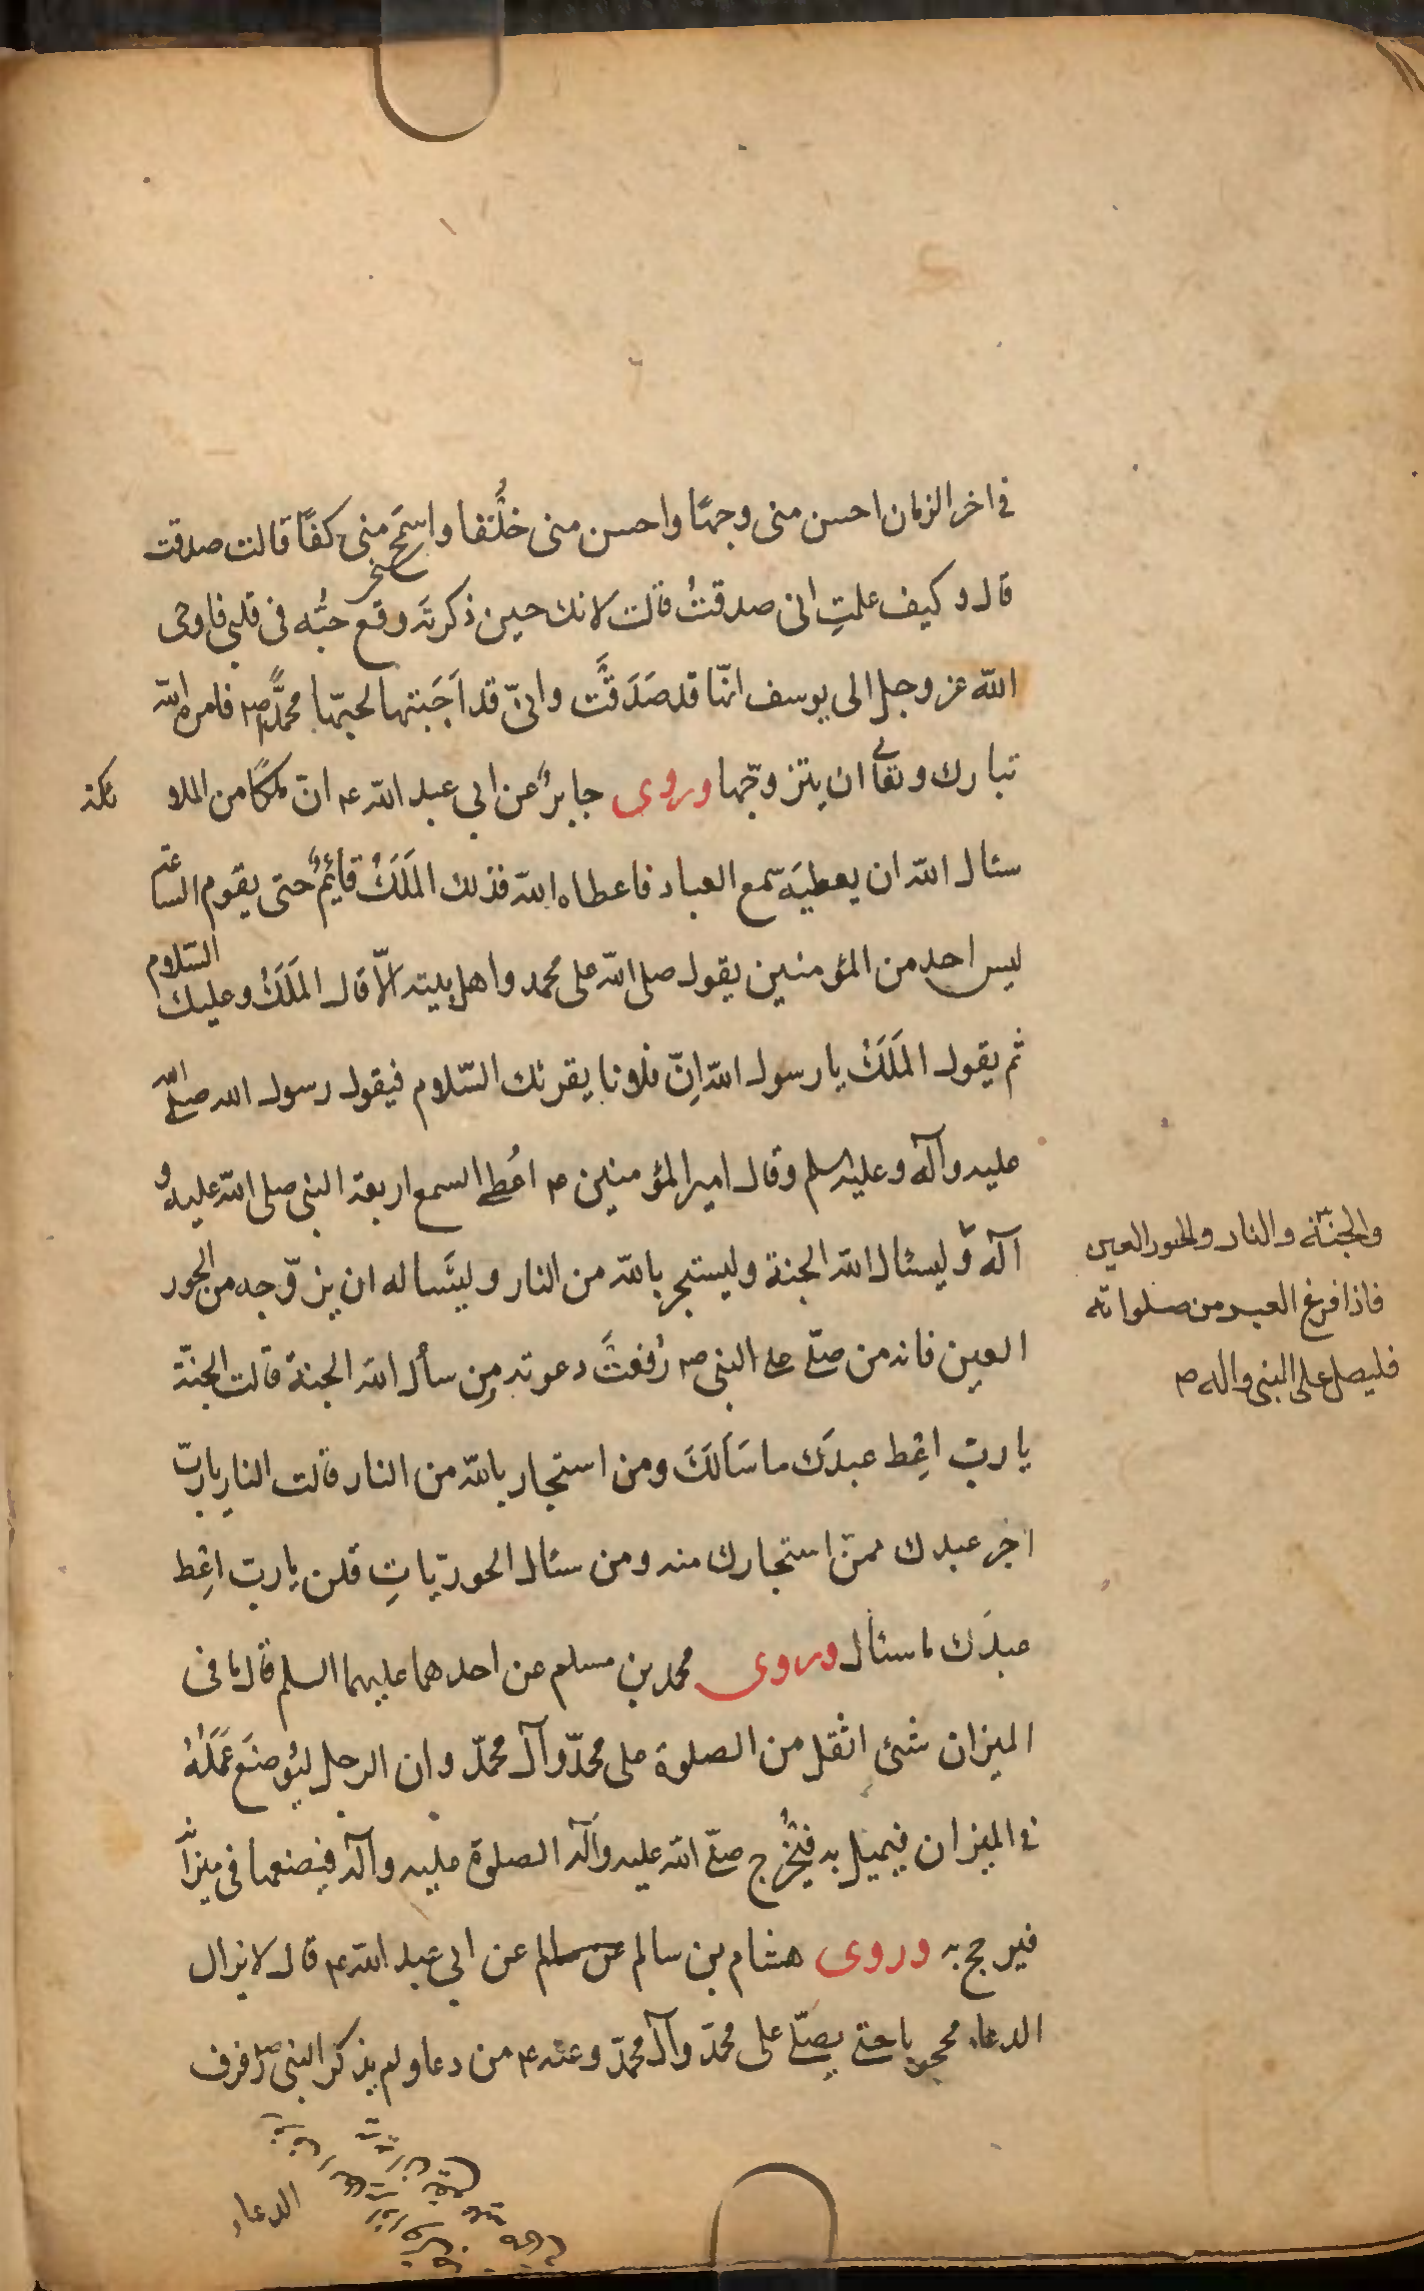 في اخر الزمان احسن منى وجهًا واحسن منى خُلْقا واسمَح منى كفًا قالت صدقت
قال وكيف علمتِ انى صدقتُ قالت لانك حين ذكرته وقع حبُّه فى قلبى فاوحى
الله عز وجل الى يوسف انّها قد صَدَقَتْ وانّى قد اَحَبَبتها لحبّها محمّدًا ص فامره الله
تبارك وتعالى ان يتزوجّها وروى جابرٌ عن ابى عبد الله ع انّ ملكًا من الملا
ئكة
سئال الله ان يعطيَه سمع العباد فاعطاه الله فذلك المَلَكُ قائِمٌ حتى يقوم الساعة
ليس احد من المؤمنين يقول صلى الله على محمد واهل بيته الّا قال المَلَكُ وعليك السّلام
ثم يقول المَلَكُ يا رسول الله اِنّ فلانا يقرئك السّلام فيقول رسول الله صلى الله
عليه وآله وعليه السلم وقال امير المؤمنين ع اُعطى السمع اربعة النبى صلى الله عليه و
آله وليسئال الله الجنة وليستجر بالله من النار وليسَٔاله ان يزوّجه من الحور
والجنّة والنار والحور العين
فاذا فرغ العبد من صلواته
فليصل على النبى واله ص
العين فانه من صلّى على النبى ص رُفعتْ دعوته ومن سأل الله الجنة قالت الجنّة
يا ربّ اعْطِ عبدَك ما سَاَلَكَ ومن استجار بالله من النار قالت النار يا ربّ
اجر عبدك ممّن استجارك منه ومن سئال الحوريّاتِ قلن يا ربّ اعْطِ
عبدَك ما سئال وروى محمد بن مسلم عن احدهما عليهما السلم قال ما فى
الميزان شئ اثقل من الصلوة على محمّد وآل محمّد وان الرجل ليُوضَع عَمَلُهُ
فى الميزان فيميل به فيُخْرج صلّى الله عليه وآله الصلوة عليه وآله فيضعها فى ميزانه
فيرجح به وروى هشام بن سالم عن سالم عن ابى عبد الله ع قال لا يزال
الدعاء محجوبا حتى يصلّى على محمّد وآل محمّد وعنه ع من دعا ولم يذكر النبى ص رفرف
الدعاء